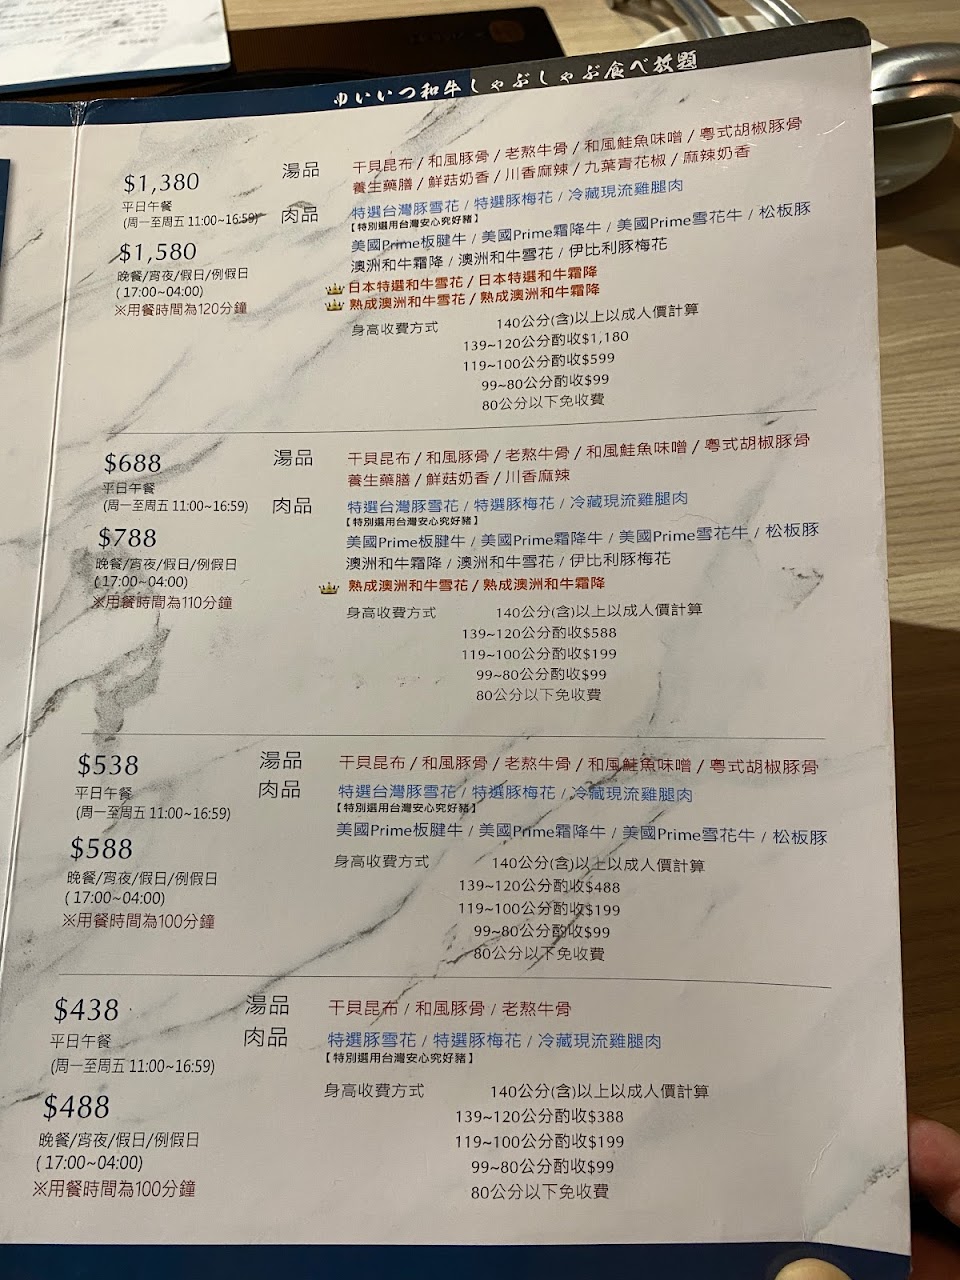 ゆいいつ和牛しゃぶしゃぶ食べ放題
$1,380
平日午餐
(周一至周五 11:00~16:59)
$1,580
晚餐/宵夜/假日/例假日
(17:00~04:00)
※用餐時間為120分鐘
湯品
干貝昆布 / 和風豚骨 / 老熬牛骨 / 和風鮭魚味噌 / 粵式胡椒豚骨
養生藥膳 / 鮮菇奶香 / 川香麻辣 / 九葉青花椒 / 麻辣奶香
肉品
特選台灣豚雪花 / 特選豚梅花 / 冷藏現流雞腿肉
【特別選用台灣安心究好豬】
美國Prime板腱牛 / 美國Prime霜降牛 / 美國Prime雪花牛 / 松板豚
澳洲和牛霜降 / 澳洲和牛雪花 / 伊比利豚梅花
日本特選和牛雪花 / 日本特選和牛霜降
熟成澳洲和牛雪花 / 熟成澳洲和牛霜降
身高收費方式
140公分(含)以上以成人價計算
139~120公分酌收$1,180
119~100公分酌收$599
99~80公分酌收$99
80公分以下免收費
$688
平日午餐
(周一至周五 11:00~16:59)
$788
晚餐/宵夜/假日/例假日
(17:00~04:00)
※用餐時間為110分鐘
湯品
干貝昆布 / 和風豚骨 / 老熬牛骨 / 和風鮭魚味噌 / 粵式胡椒豚骨
養生藥膳 / 鮮菇奶香 / 川香麻辣
肉品
特選台灣豚雪花 / 特選豚梅花 / 冷藏現流雞腿肉
【特別選用台灣安心究好豬】
美國Prime板腱牛 / 美國Prime霜降牛 / 美國Prime雪花牛 / 松板豚
澳洲和牛霜降 / 澳洲和牛雪花 / 伊比利豚梅花
熟成澳洲和牛雪花 / 熟成澳洲和牛霜降
身高收費方式
140公分(含)以上以成人價計算
139~120公分酌收$588
119~100公分酌收$199
99~80公分酌收$99
80公分以下免收費
$538
平日午餐
(周一至周五 11:00~16:59)
$588
晚餐/宵夜/假日/例假日
(17:00~04:00)
※用餐時間為100分鐘
湯品
干貝昆布 / 和風豚骨 / 老熬牛骨 / 和風鮭魚味噌 / 粵式胡椒豚骨
肉品
特選台灣豚雪花 / 特選豚梅花 / 冷藏現流雞腿肉
【特別選用台灣安心究好豬】
美國Prime板腱牛 / 美國Prime霜降牛 / 美國Prime雪花牛 / 松板豚
身高收費方式
140公分(含)以上以成人價計算
139~120公分酌收$488
119~100公分酌收$199
99~80公分酌收$99
80公分以下免收費
$438
平日午餐
(周一至周五 11:00~16:59)
$488
晚餐/宵夜/假日/例假日
(17:00~04:00)
※用餐時間為100分鐘
湯品
干貝昆布 / 和風豚骨 / 老熬牛骨
肉品
特選豚雪花 / 特選豚梅花 / 冷藏現流雞腿肉
【特別選用台灣安心究好豬】
身高收費方式
140公分(含)以上以成人價計算
139~120公分酌收$388
119~100公分酌收$199
99~80公分酌收$99
80公分以下免收費